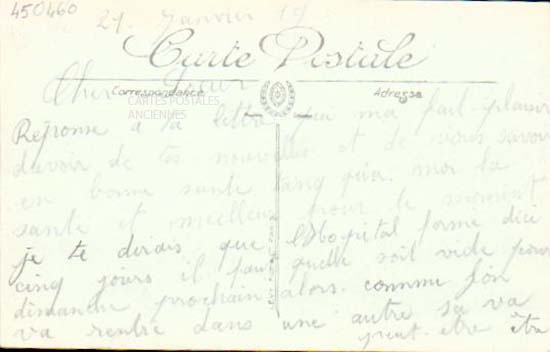 450460
21. Janvier 19
Carte Postale
Correspondance
Adresse
CARTES POSTALES
ANCIENNES
Cher Sœur
Réponse a ta lettre qui ma fait plaisir
davoir de tes nouvelles et de vous savoir
en bonne santé tant qua moi la
santé et meilleur pour le moment
je te dirais que l'Hospital ferme dici
cinq jours il faut quelle soit vide pour
dimanche prochain alors comme s'on
va rentré dans une autre sa va
peut-être être